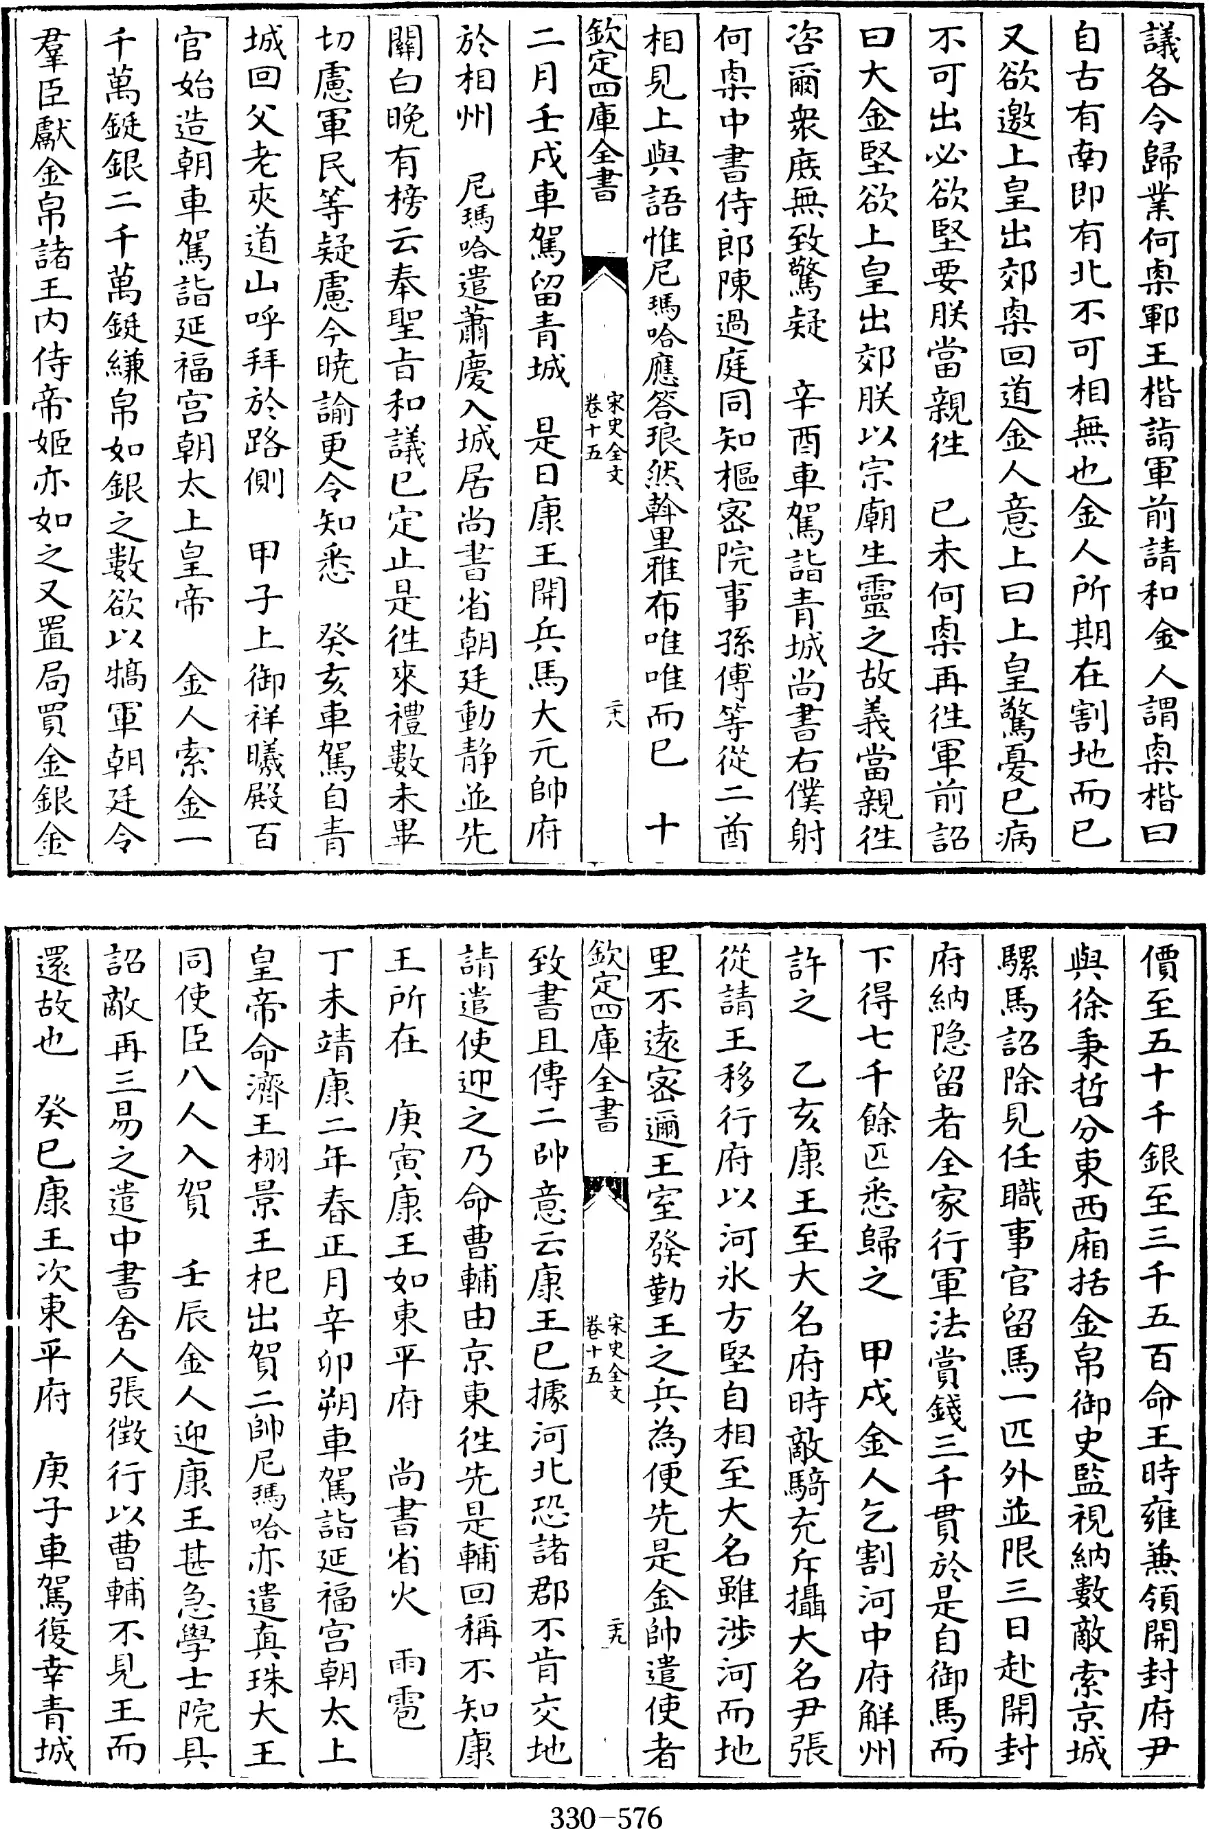 議各令歸業何㮚鄆王楷詣軍前請和金人謂㮚楷曰
自古有南即有北不可相無也金人所期在割地而已
又欲邀上皇出郊㮚回道金人意上曰上皇驚憂已病
不可出必欲堅要朕當親徃　已未何㮚再徃軍前詔
曰大金堅欲上皇出郊朕以宗廟生靈之故義當親徃
咨爾衆庶無致驚疑　辛酉車駕詣青城尚書右僕射
何㮚中書侍郎陳過庭同知樞密院事孫傅等從二酋
相見上與語惟尼瑪哈應答琅然斡里雅布唯唯而已　十
欽定四庫全書
宋史全文
卷十五
二十八
二月壬戍車駕留青城　是日康王開兵馬大元帥府
於相州　尼瑪哈遣蕭慶入城居尚書省朝廷動静並先
關白晚有榜云奉聖旨和議已定止是徃來禮數未畢
切慮軍民等疑慮今曉諭更令知悉　癸亥車駕自青
城回父老夾道山呼拜於路側　甲子上御祥曦殿百
官始造朝車駕詣延福宫朝太上皇帝　金人索金一
千萬鋌銀二千萬鋌縑帛如銀之數欲以犒軍朝廷令
羣臣獻金帛諸王内侍帝姬亦如之又置局買金銀金
價至五十千銀至三千五百命王時雍兼領開封府尹
與徐秉哲分東西廂括金帛御史監視納數敵索京城
騾馬詔除見任職事官留馬一匹外並限三日赴開封
府納隐留者全家行軍法賞錢三千貫於是自御馬而
下得七千餘匹悉歸之　甲戍金人乞割河中府解州
許之　乙亥康王至大名府時敵騎充斥攝大名尹張
從請王移行府以河氷方堅自相至大名雖涉河而地
里不逺密邇王室發勤王之兵為便先是金帥遣使者
欽定四庫全書
宋史全文
卷十五
二十九
致書且傳二帥意云康王已據河北恐諸郡不肯交地
請遣使迎之乃命曹輔由京東徃先是輔回稱不知康
王所在　庚寅康王如東平府　尚書省火　雨雹
丁未靖康二年春正月辛卯朔車駕詣延福宫朝太上
皇帝命濟王栩景王杞出賀二帥尼瑪哈亦遣真珠大王
同使臣八人入賀　壬辰金人迎康王甚急學士院具
詔敵再三易之遣中書舍人張徴行以曹輔不見王而
還故也　癸巳康王次東平府　庚子車駕復幸青城
330-576